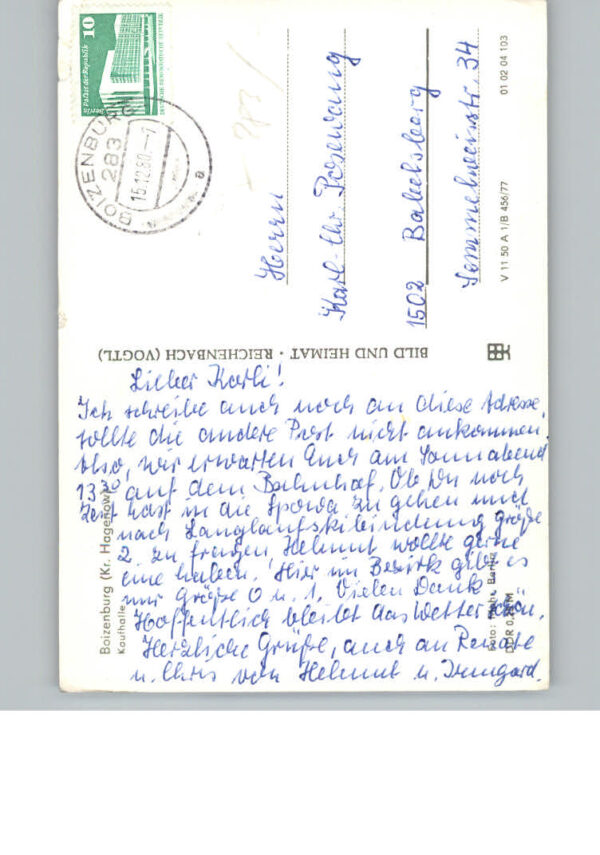 10
Palast der Republik
Berlin
DEUTSCHE DEMOKRATISCHE REPUBLIK
BOIZENBURG
283
15.12.80.-7
a
283
Herrn
Karl Chr. Posewang
1502 Babelsberg
Semmelweisstr. 34
01 02 04 103
V 11 50 A 1/B 456/77
BILD UND HEIMAT · REICHENBACH (VOGTL)
Lieber Karli!
Ich schreibe auch noch an diese Adresse,
sollte die andere Post nicht ankommen.
Also, wir erwarten Euch am Sonnabend
13³⁰ auf dem Bahnhof. Ob Du noch
Zeit hast in die Spowa zu gehen und
nach Langlaufskibindung größe
2 zu fragen, Helmut wollte gerne
eine haben. Hier im Bezirk gibt es
nur größe 0 u. 1. Vielen Dank
Hoffentlich bleibt das Wetter schön.
Herzliche Grüße, auch an Renate
u. Chris von Helmut u. Irmgard.
Boizenburg (Kr. Hagenow)
Kaufhalle
Foto:
DDR 0, M